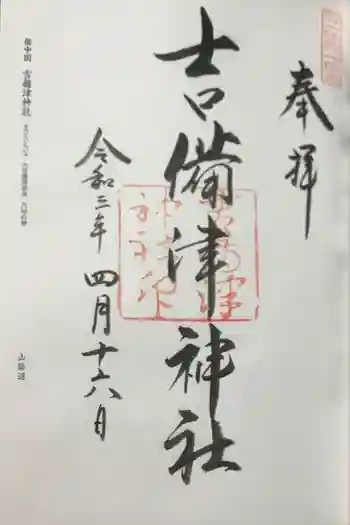 奉拝
吉備津神社
令和三年
四月十六日
備中国 吉備津神社
山陽道